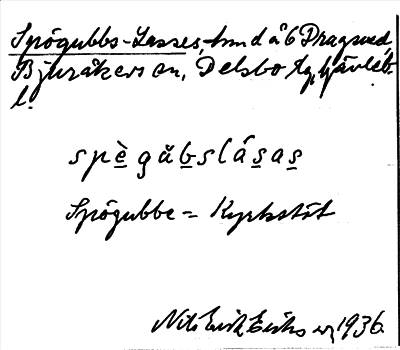 Spögubbs-Lasses, hmd å 6 Dragsved,
Bjuråkers sn, Delsbo tg, Gävleb.
l.
spè̲gåb̲slás̲as̲
Spögubbe = Kyrkstöt
Nils Erik Eriks 1936.